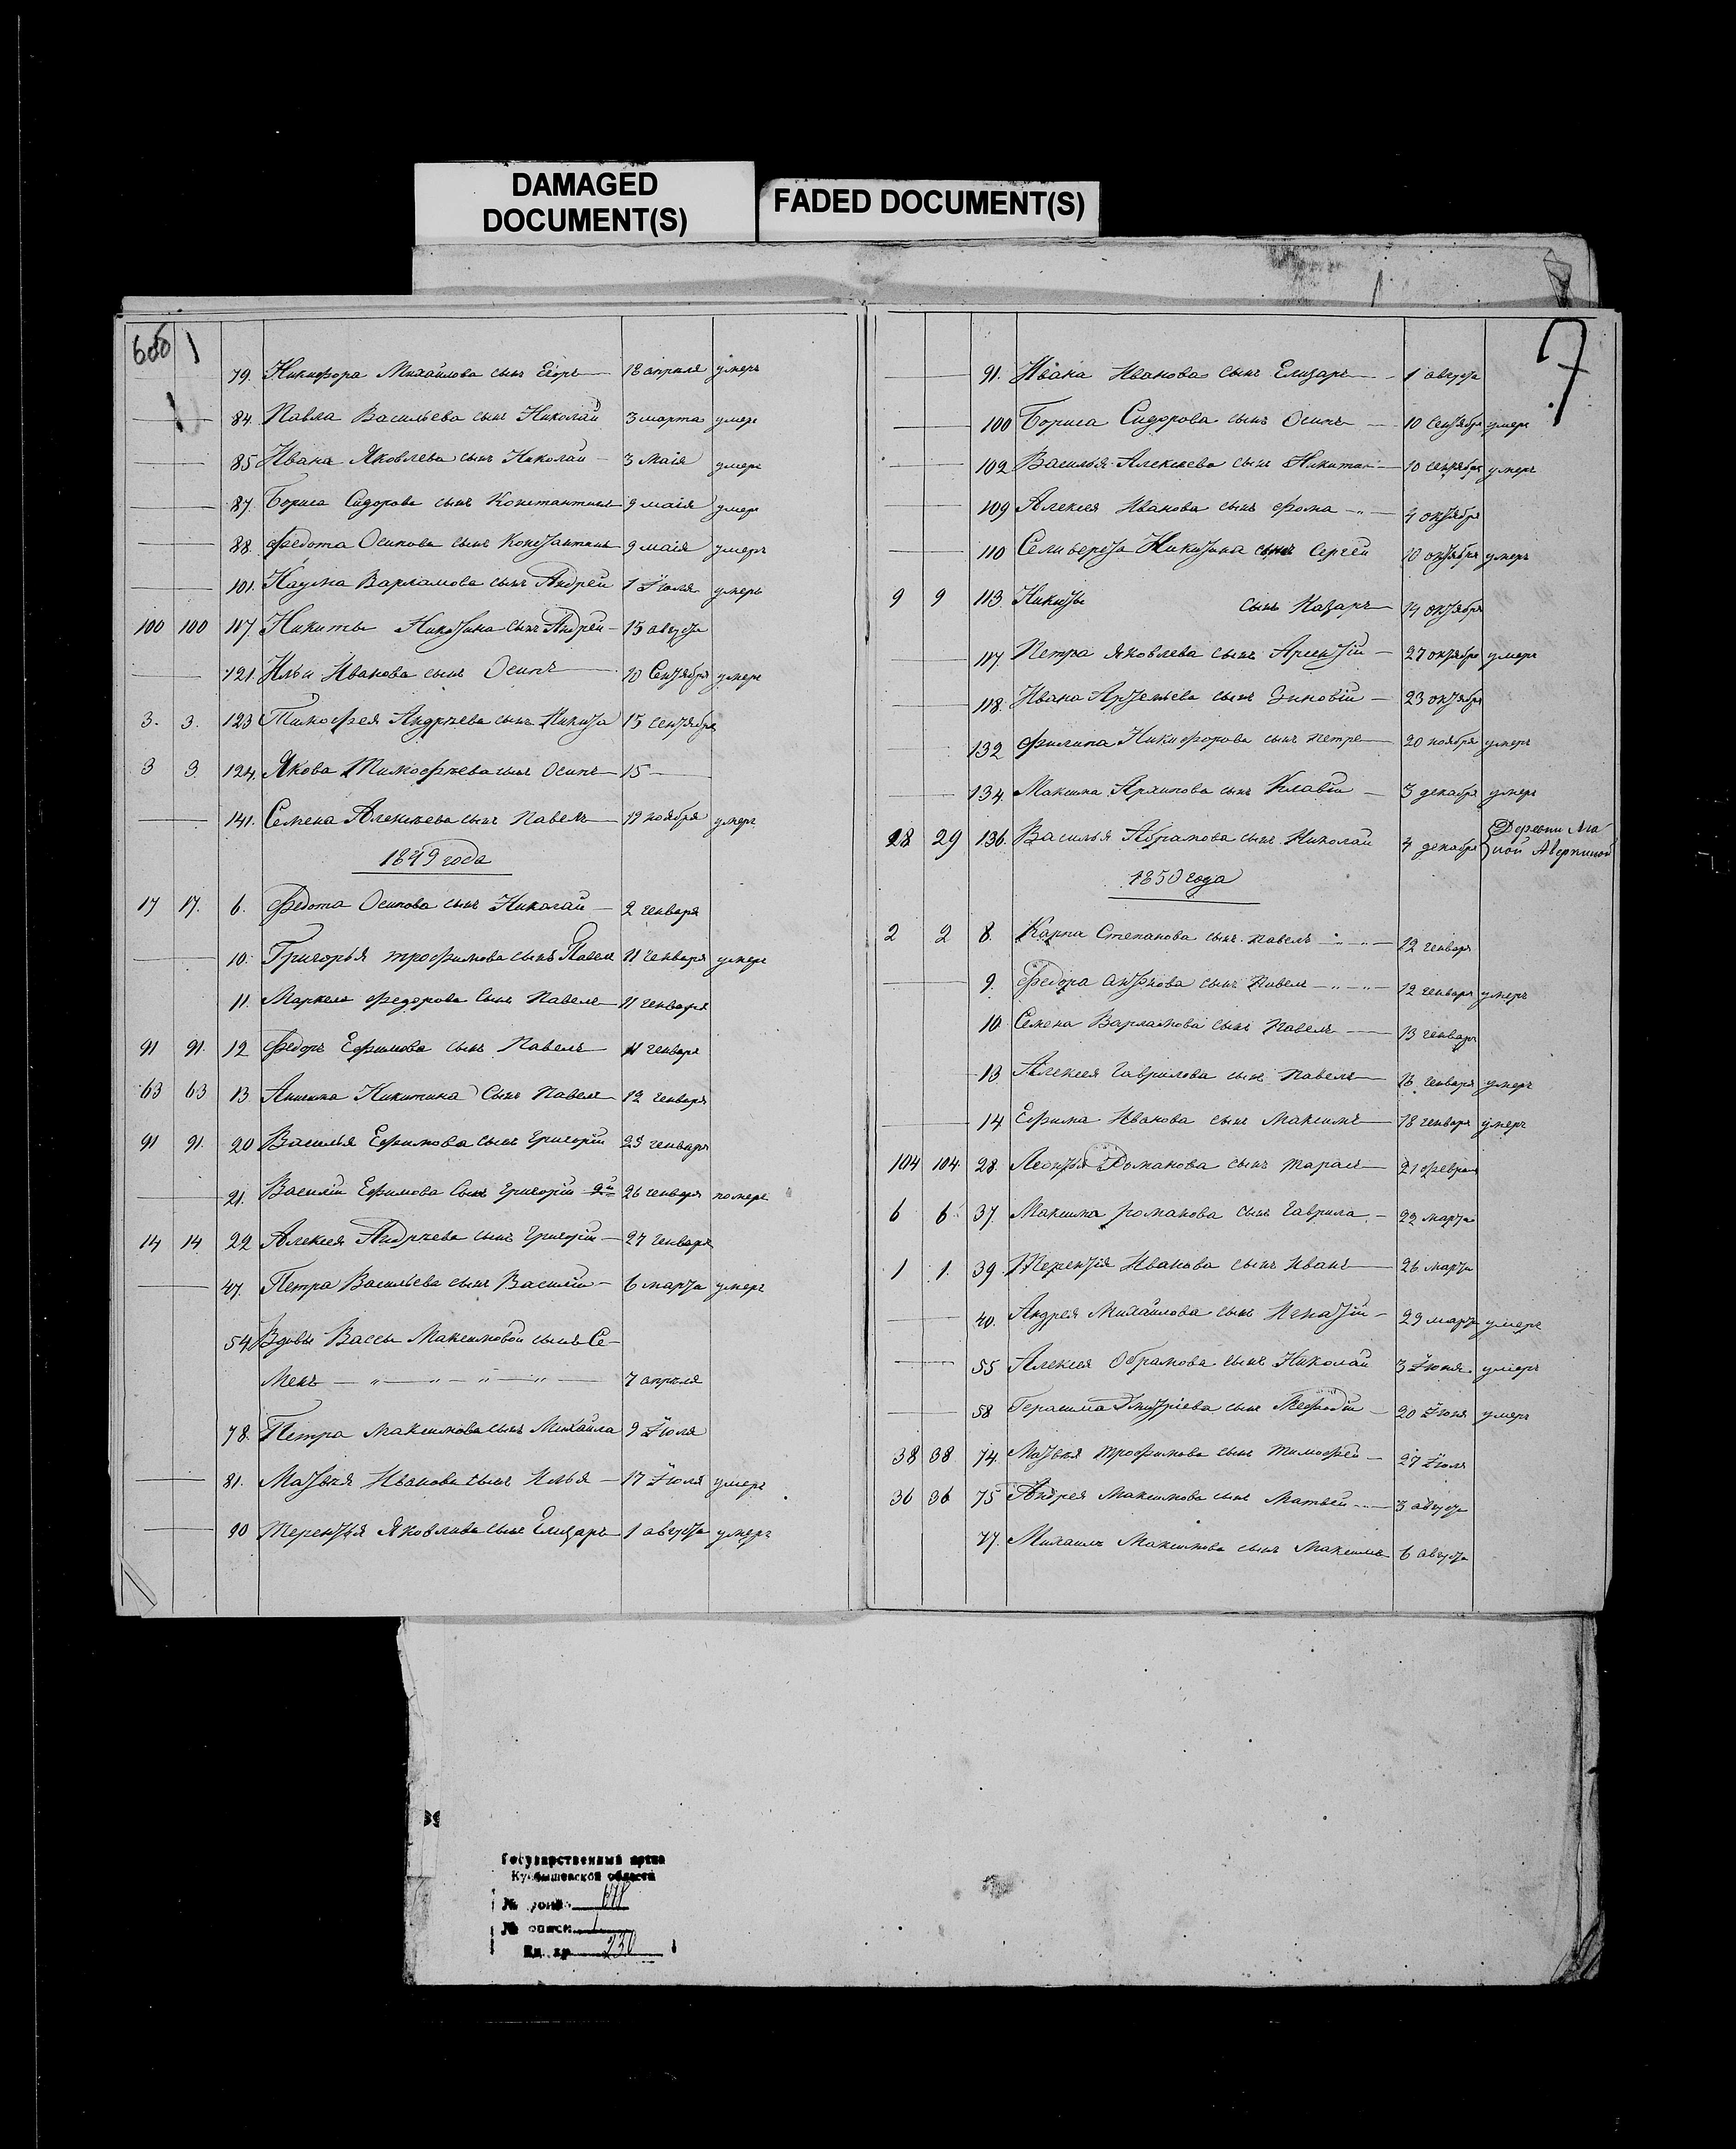 DAMAGED
DOCUMENT(S)
FADED DOCUMENT(S)
1
79. Никифора Михайлова сынъ Егоръ 18 апреля умеръ
84. Павла Васильева сынъ Николай 3 марта умеръ
85 Ивана Яковлева сынъ Николай 3 маія умеръ
87. Бориса Сидорова сынъ Константинъ 9 маія умеръ
88. Федота Осипова сынъ Константинъ 9 маія умеръ
101. Наума Варламова сынъ Андрей 1 Іюля умеръ
100 100 117. Никиты Никитина сынъ Андрей 15 августа
121. Ильи Иванова сынъ Осипъ 10 Сентября умеръ
3. 3. 123 Тимофея Андреева сынъ Никита 15 сентября
3 3 124. Якова Тимофеева сынъ Осипъ 15
141. Семена Алексеева сынъ Павелъ 19 ноября умеръ
1849 года
17 17. 6. Федота Осипова сынъ Николай 2 генваря
10. Григорья трофимова сынъ Павелъ 11 генваря умеръ
11. Маркела Федорова сынъ Павелъ 11 генваря
91 91. 12 Федоръ Ефимова сынъ Павелъ 11 генваря
63 63 13. Анисима Никитина Сынъ Павелъ 12 генваря
91 91. 20 Василья Ефимова сынъ григорій 25 генваря
21. Василій Ефимова Сынъ григорій 2й 26 генваря померъ
14 14 22 Алексея Андреева сынъ григорій 27 генваря
47. Петра Васильева сынъ Василій 6 марта умеръ
54 Вдовы Вассы Максимовой сынъ Се-
менъ 7 апреля
78. Петра Максимова сынъ Михайла 9 Іюля
81. Матвея Иванова сынъ Илья 17 Іюля умеръ
90 Терентья Яковлива сынъ Елизаръ 1 августа умеръ
7
91. Ивана Иванова сынъ Елизаръ 1 августа
100 Бориса Сидорова сынъ Осипъ 10 сентября умеръ
102 Василья Алексеева сынъ Никита 10 сентября умеръ
109 Алексея Иванова сынъ Фома 4 октября
110 Селиверста Никитина сынъ Сергей 10 октября умеръ
9 9 113. Никиты сынъ Назаръ 14 октября
117. Петра Яковлева сынъ Арентій 27 октября умеръ
118. Ивана Артемьева сынъ Зиновій 23 октября
132 Филипа Никифорова сынъ петръ 20 ноября умеръ
134. Максима Архипова сынъ 3 декабря умеръ
28 29 136. Василья Абрамова сынъ Николай 4 декабря Деревни Ма-
лой Аверкиной
1850 года
2 2 8. Карпа Степанова сынъ павелъ 12 генваря
9. Федора сынъ Павелъ 12 генваря умеръ
10 Семена Варламова сынъ Павелъ 13 генваря
13 Алексея Гаврилова сынъ Павелъ 16 генваря умеръ
14 Ефима Иванова сынъ Максимъ 18 генваря умеръ
104 104. 28. Леонтья Романова сынъ тарасъ 21 февраля
6 6 37. Максима романова сынъ Гаврила 22 марта
1 1. 39. Терентія Иванова сынъ иванъ 26 марта
40. Андрея Михайлова сынъ 29 марта умеръ
55 Алексея Обрамова сынъ Николай 3 Іюня умеръ
58 Герасима Дмитріева сынъ Мефодій 20 Іюня умеръ
38 38 74. Матвея трофимова сынъ тимофей 27 Іюля
36 36 75 Андрея Максимова сынъ Матвей 3 августа
77. Михаилъ Максимова сынъ Максимъ 6 августа
Государственный архив
Куйбышевской области
№ фонд
№ описи 1
Ед. хр 230